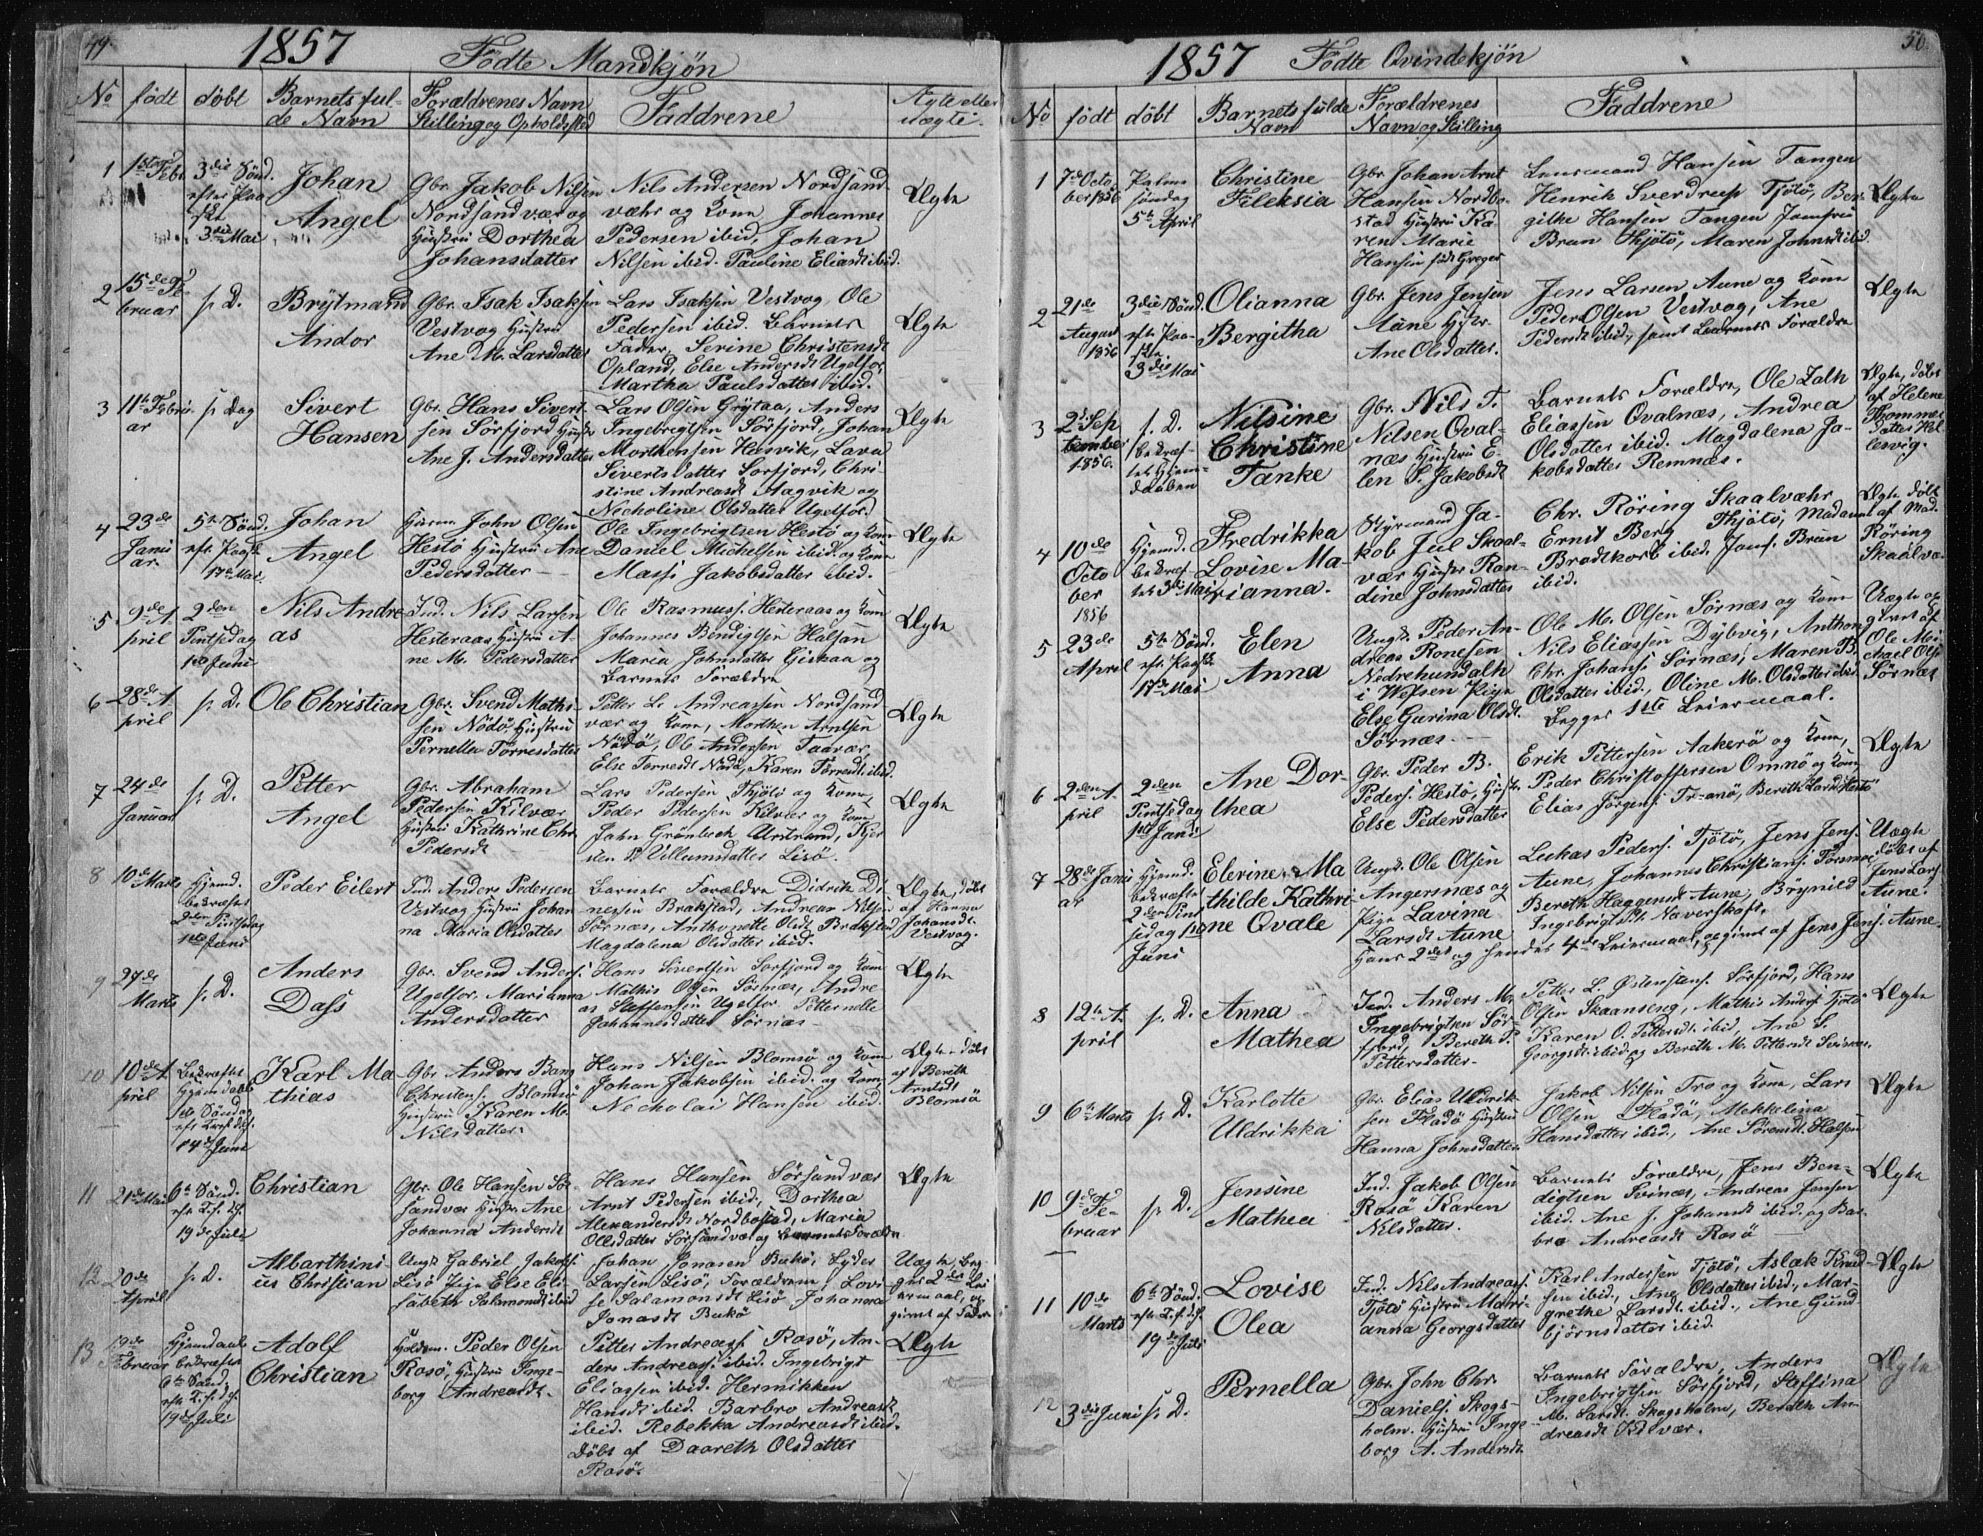 49.
1857
Fødte Mandkjøn
No født døbt Barnets ful-de Navn Forældrenes Navn Stilling og Opholdssted Faddrene Ægte eller uægte.
1 1ste Febr 3die Sönd. efter Paaske 3die Mai
Johan
Angel
Gbr. Jakob Nilsen
Nordsandvær og
Hustru Dorthea
Johansdatter
Nils Andersen Nordsand
væhr og Kone, Johannes
Pedersen ibid, Johan
Nilsen ibid. Pauline Eliasdt ibid.
Ægte
2 15de Fe-
bruar
s. D.
Brÿtmand
Andor
Gbr. Isak Isaksen
Vestvog Hustru
Ane M. Larsdatter
Lars Isaksen Vestvog, Ole
Pedersen ibid. Barnets
Fader, Serine Christensdt
Opland, Else Andersdt Ugelfor,
Martha Paulsdatter ibid.
Ægte
3 11te Febru
ar
s. Dag
Sivert
Hansen
Gbr. Hans Sivert-
sen Sørfjord Hustr
Ane J. Andersdatter
Lars Olsen Grÿtaa, Anders
Ingebrigtsen Sørfjord, Johan
Morthensen Hasvik, Lava
Siverts Datter Sørfjord, Chri
stine Andreasdt Aagvik og
Nicholine Olsdatter Ugelfor.
Ægte
4 23de
Janu
ar.
5te Sønd.
eft. Paaske
17de Mai
Johan
Angel
Huusm. John Olsen
Hestø Hustru Ane
Pedersdatter
Ole Ingebrigtsen Hestø og Kone
Daniel Michelsen ibid. og Kone
Massi Jakobsdatter ibid.
Ægte
5 9de A
pril
2den
Pintsedag
1ste Juni
Nils Andre
as
Ind. Nils Larsen
Hesteraas Hustru A-
ne M. Pedersdatter
Ole Rasmuss. Hesteraas og Kone
Johannes Bendigtsen Halsan
Maria Johnsdatter Ejiskaa og
Barnets Forældre
Ægte
6 28de A
pril
s. D.
Ole Christian
Gbr. Svend Mathi-
sen Nødø, Hustru
Pernella Tørresdatter
Petter L. Andreassen Nordsand
vær og Kone, Morthen Arntsen
Nødø, Ole Andersen Taavær
Else Tørresdt Nødø, Karen Tørresdt ibid.
Ægte
7 24de
Januar
s. D.
Petter
Angel
Gbr. Abraham
Pedersen Kilvær
Hustru Kathrine Chr.
Pedersdt
Lars Pedersen Thjøtø og Kone
Peder Pedersen Kilvær og Kone
Jahn Grønbech Urstrand, Kjer
sten P. Villumsdatter Lisø.
Ægte
8 10de Marts
Hjemd.
bekræftet
2den Pintsedag
1ste Juni
Peder Eilert
Ind. Anders Pedersen
Vestvog Hustru Johan
na Maria Olsdatter
Barnets Forældre Didrik Di-
nessen Brakstad, Andreas Nilsen
Sørnæs, Anthonette Olsdt Brakstad
Magdalena Olsdatter ibid.
Ægte, døbt
af Hanna
Johansdt.
Vestvog.
9 27de
Marts
s. D.
Anders
Dass
Gbr. Svend Anders.
Ugelfor. Marianna
Andersdatter
Hans Sivertsen Sørfjord og Kone
Mathis Olsen Sørnæs, Andre
as Steffensen Ugelfor Petternelle
Johannesdatter Sørnæs.
Ægte
10 10de A
pril
Bekræftet
Hjemdaab
1ste Søndag
eft. Tref.
14de Juni
Karl Ma
thias
Gbr. Anders Bang
Christens. Blomsø
Hustru Karen M.
Nilsdatter.
Hans Nilsen Blomsø og Kone
Johan Jakobsen ibid. og Kone
Necholai Hansen ibid.
Ægte døbt
af Bereth
Arntsdt
Blomsø
11 21de Mai
6te Sønd.
eft. T. f. d.
19de Juli
Christian
Gbr. Ole Hansen Sør-
sandvær Hustr. Ane
Johanna Andersdt
Hans Hansen Sørsandvær
Arnt Pedersen ibid. Dorthea
Alexandersdt Nordbostad, Maria
Olsdatter Sørsandvær og Barnets Forældre
Ægte
12 20de
April
s. D.
Albarthini-
us Christian
Ungk. Gabriel Jakobs.
Lisø Pige Else Eli-
sabeth Salamonsdt ibid
Johan Jonasen Bukø, Lÿder
Larsen Lisø, Forældrene, Lovi-
se Salamonsdt Lisø Johanna
Jonasdt Bukø
Uægte, Beg-
ges 2det Lei
ermaal, op-
givet af Faderen
13 19de
Februar
Hjemdaab
bekræftet
6te Sønd.
eft. T. f. d.
19de Juli
Adolf
Christian
Huusm. Peder Olsen
Rosø, Hustru Inge-
borg Andreasdt.
Petter Andreass. Rosø, An-
ders Andreass. ibid. Ingebrigt
Eliassen ibid. Hermikken
Hansdt ibid. Barbro Andreasdt
ibid. Rebekka Andreasdt ibid.
Døbt af Daareth Olsdatter
Rosø.
Ægte
50.
1857 Fødte Qvindekjøn
No født døbt Barnets fulde Navn Forældrenes Navn og Stilling Faddrene
1 7de Octo
ber 1856
Palme
søndag
5te April
Christine
Feleksia
Gbr. Johan Arnt
Hansen Nordbo-
stad Hustru Ka-
ren Marie
Hansen født Greger
Lensmand Hansen Tangen
Henrik Sverdrup Tjøtø, Ber-
gitke Hansen Tangen Jomfru
Brun Thjøtø, Maren Johnsdt ibid.
Ægte
2 21de
August
1856
3die Sønd.
eft. Paa-
ske.
3die Mai
Olianna
Bergitha
Gbr. Jens Jensen
Aune Hustr.
Ane Olsdatter.
Jens Larsen Aune og Kone
Peder Olsen Vestvog, Ane
Pedersdt ibid, samt Barnets Forældre
Ægte
3 2de Sep
tember
1856.
s. D.
bekræf-
tet Hjem-
daaben
Nilsine
Christine
Tanke
Gbr. Nils T.
Nilsen Qval-
næs Hustru E-
len S. Jakobsdt
Barnets Forældre, Ole Zath
Eliassen Qvalnæs, Andrea
Olsdatter ibid. Magdalena Ja-
kobsdatter Remnæs.
Ægte, døbt
af Helene
Thommes
datter Hel
lesvig.
4 10de
Octo
ber
1856
Hjemd.
bekræf-
tet 3die Mai
Fredrikka
Lovise Ma-
rianna.
Styrmand Ja-
kob Jul Skaal-
vær Hustr. Ran-
dine Johnsdatter
Chr. Røring Skaalvæhr
Ernst Berg Thjøtø, Madame
Brodtkorb ibid. Jomf. Brun
ibid.
Ægte døbt
af Mad.
Røring
Skaalvær
5 23de
April
5te Sønd.
eft. Paaske
17de Mai
Elen
Anna
Ungk. Peder An-
dreas Ronesen
Nedrehundalh
i Wefsen Pige
Else Gurina Olsdt.
Sørnæs
Ole M. Olsen Sørnæs og Kone
Nils Eliassen Dÿbvig, Anthon
Chr. Johans. Sørnæs, Maren B.
Olsdatter ibid., Oline M. Olsdatter ibid.
Begges 1ste Leiermaal.
Uægte op-
givet af
Ole Mi-
chael Olsen
Sørnæs
6 2den A
pril
2den
Pintsedag
1ste Juni
Ane Dor-
thea
Gbr. Peder B.
Peders. Hestø, Hustr.
Else Pedersdatter
Erik Pettersen Aakerø og Kone,
Peder Christoffersen Omnø og Kone
Elias Jørgens. Tranø, Bereth Larsdt Hestø
Ægte
7 28de Janu
ar
Hjemd.
bekræftet
2den Pint
sedag 1ste
Juni
Elerine Ma
thilde Kathri
ne Qvale
Ungk. Ole Olsen
Angersnæs og
Pige Lavina
Larsdt Aune
Hans 2det og hendes 4de Leiermaal, opgivet af Jens Jens. Aune.
Lukas Peders. Tjøtø, Jens Jens.
Aune, Johannes Christians. Forsmoe
Bereth Haggensdt Aune, Brÿnild
Ingebrigtsdt. Naverskaft.
Uægte
døbt af
Jens Lars.
Aune.
8 12te A
pril
s. D.
Anna
Mathea
Ind. Anders M.
Ingebrigtsen Sør-
fjord. Bereth P.
Pettersdatter.
Petter L. Østenstens. Sørfjord, Hans
Olsen Skaanseng, Mathis Anders. Tjøtø
Karen O. Pettersdt ibid, Ane S.
Georgsdt ibid og Bereth M. Pettersdt
Ægte
9 6te Marts
s. D.
Karlotte
Uldrikka
Gbr. Elias Uldrik-
sen Fladø Hustru
Hanna Johnsdatter
Jakob Nilsen Tro og Kone, Lars
Olsen Fladø, Mekkelina
Hansdatter ibid., Ane Sørensdt Halsen
Ægte
10 9de Fe-
bruar
s. D.
Jensine
Mathea
Ind. Jakob Olsen
Rosø Karen
Nilsdatter.
Barnets Forældre, Jens Ben-
digtsen Svinæs, Andreas Jonsen
ibid. Ane J. Johansdt ibid. og Bar-
bro Andreasdt Rosø
Ægte
11 10de
Marts
6te Sønd.
eft. T. f. d.
19de Juli
Lovise
Olea
Ind. Nils Andreass.
Tjøtø Hustru Mari-
anna Georgsdatter
Karl Andersen Tjøtø, Aslak Knud-
sen ibid., Ane Olsdatter ibid., Mar-
grethe Larsdt ibid., Ane Gund-
bjørnsdatter ibid.
Ægte
12 3die Juni
s. D.
Pernella
Gbr. John Chr.
Daniels. Skogs-
holm. Hustru Inge
borg A. Andersdt.
Barnets Forældre, Anders
Ingebrigtsen Sørfjord, Steffina
M. Larsdt. Skogsholm, Bereth An-
dreasdt Kilvær.
Ægte